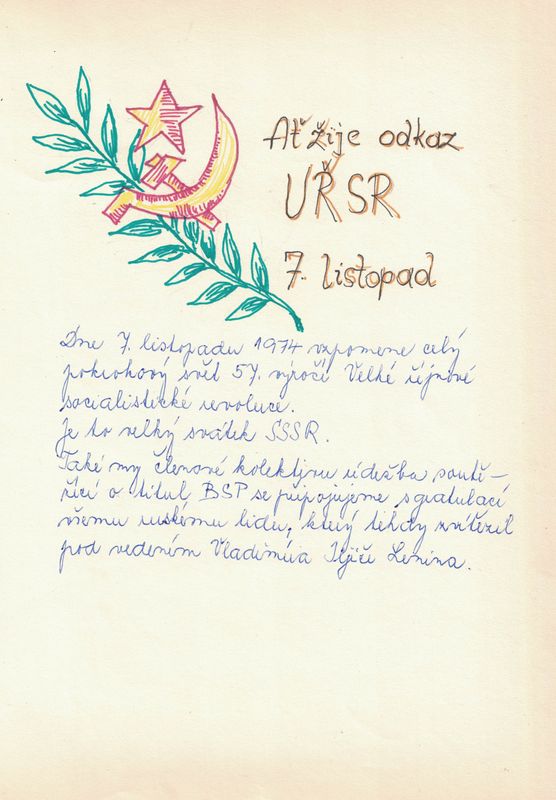 Ať žije odkaz
VŘSR
7. listopad
Dne 7. listopadu 1974 vzpomene celý
pokrokový svět 57. výročí Velké říjnové
socialistické revoluce.
Je to velký svátek SSSR.
Také my členové kolektivu údržba soutě-
žící o titul BSP se připojujeme s gratulací
všemu ruskému lidu, který tehdy zvítězil
pod vedením Vladimíra Iljiče Lenina.